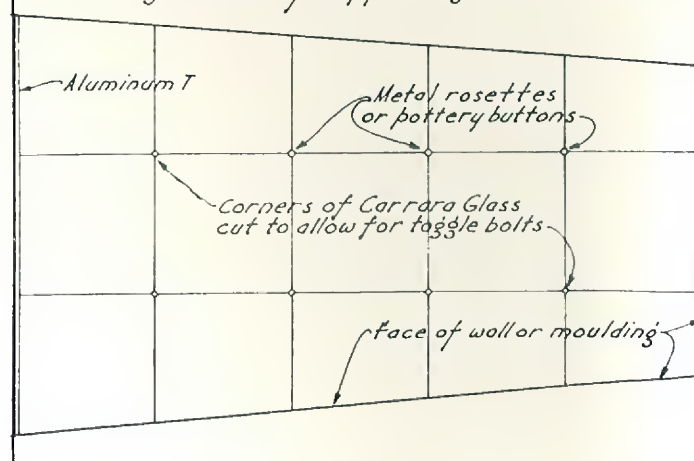 Aluminum T
Metal rosettes
or pottery buttons
Corners of Carrara Glass
cut to allow for toggle bolts
Face of wall or moulding